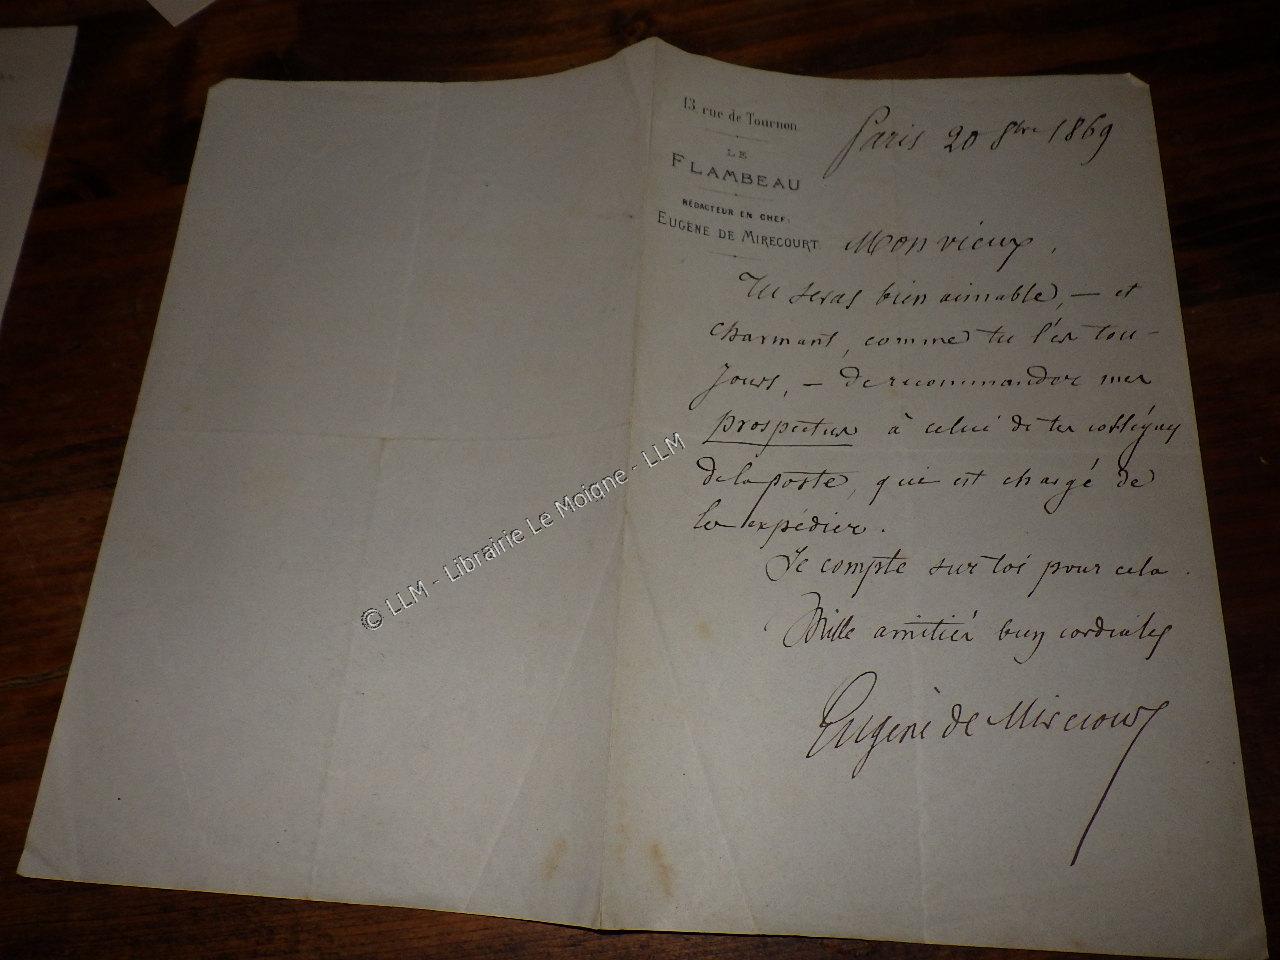 13 rue de Tournon
LE
FLAMBEAU
RÉDACTEUR EN CHEF:
EUGÈNE DE MIRECOURT
Paris 20 8bre 1869
Mon vieux,
Tu seras bien aimable, — et
charmant, comme tu l'es tou-
jours, — de recommander mes
prospectus à celui de tes collègues
de la poste, qui est chargé de
les expédier.
Je compte sur toi pour cela.
Mille amitiés bien cordiales
Eugène de Mirecourt
© LLM - Librairie Le Moigne - LLM